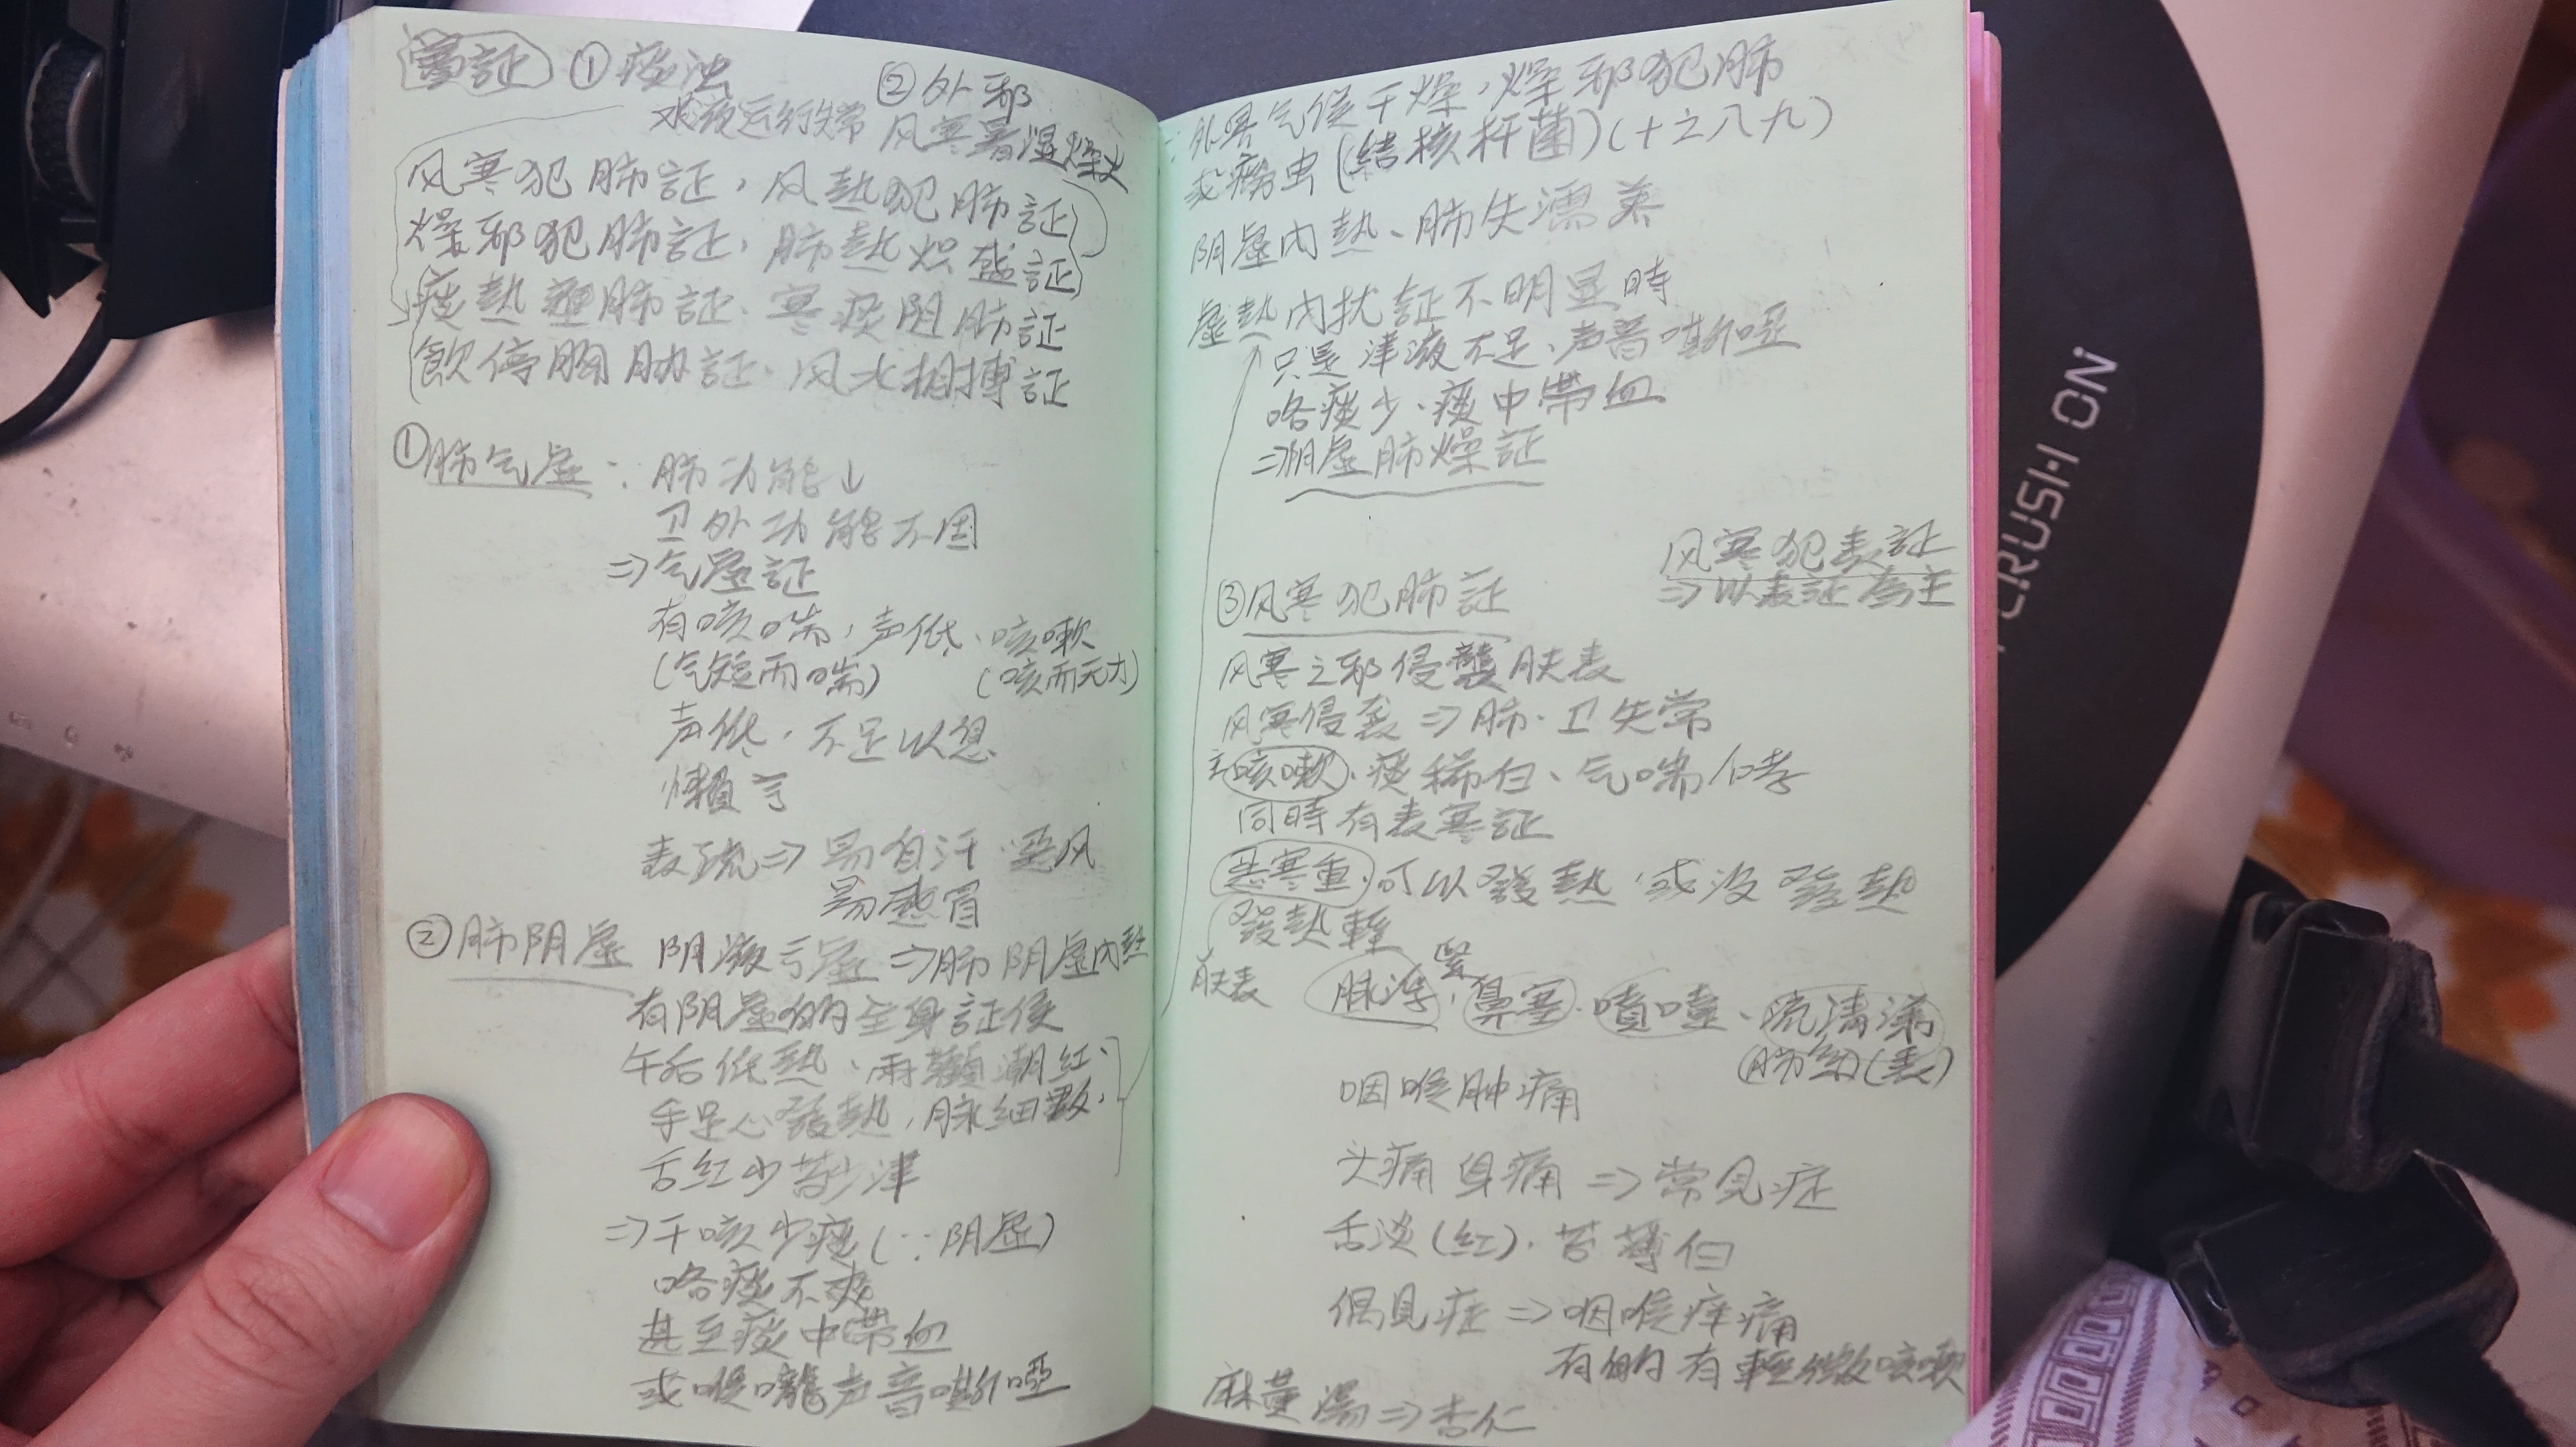 實証 ①痰浊 ②外邪
水液运行失常 风寒暑湿燥火
风寒犯肺証，风熱犯肺証
燥邪犯肺証，肺熱炽盛証
痰熱壅肺証、寒痰阻肺証
飲停胸肋証、风水相搏証
①肺气虛 ∵ 肺功能↓
卫外功能不固
⇒气虛証
有咳喘，声低、咳嗽
(气短而喘) (咳而无力)
声低，不足以息
懒言
表疏⇒易自汗 恶风
易感冒
②肺阴虛 阴液亏虛⇒肺阴虛内熱
有阴虛的全身証候
午后低熱、兩顴潮红、
手足心發熱，脉细數、
舌红少苔少津
⇒干咳少痰(∵阴虛)
咯痰不爽
甚至痰中帶血
或喉嚨声音嘶啞
∵外界气侯干燥，燥邪犯肺
或痨虫(結核杆菌)(十之八九)
阴虛内熱、肺失濡养
虛熱内扰証不明显時
只是津液不足、声音嘶啞
咯痰少、痰中帶血
⇒阴虛肺燥証
风寒犯表証
⇒以表証為主
③风寒犯肺証
风寒之邪侵襲肤表
风寒侵襲⇒肺、卫失常
主咳嗽、痰稀白、气喘
同時有表寒証
恶寒重、可以發熱，或没發熱
發熱輕
肤表 脉浮紧，鼻塞、噴嚏、流清涕
肺衛(表)
咽喉肿痛
头痛身痛⇒常見症
舌淡(红)、苔薄白
偶見症⇒咽喉痒痛
有的有輕微咳嗽
麻黄湯⇒杏仁
CRUSH ON